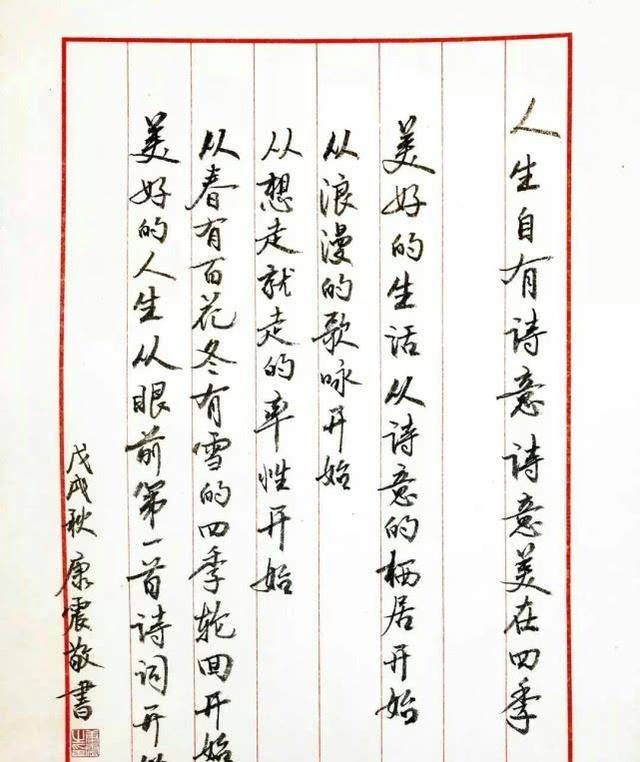 人生自有诗意诗意美在四季
美好的生活从诗意的栖居开始
从浪漫的歌咏开始
从想走就走的率性开始
从春有百花冬有雪的四季轮回开始
美好的人生从眼前第一首诗词开
戊戌秋康震敬書